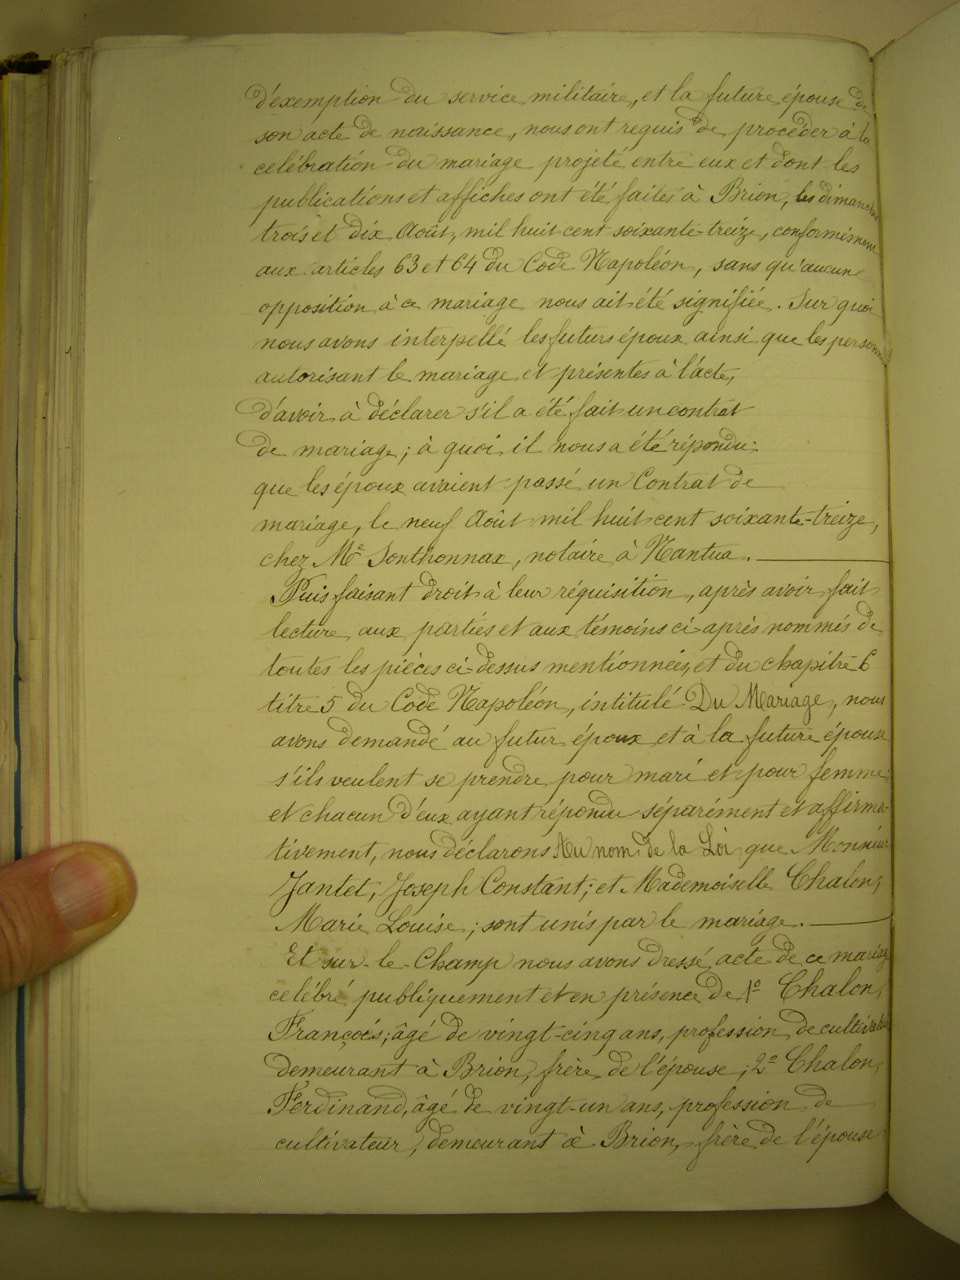 d'exemption du service militaire, et la future épouse de
son acte de naissance, nous ont requis de procéder à la
celébration du mariage projeté entre eux et dont les
publications et affiches ont été faites à Brion, les dimanches
trois et dix Août, mil huit cent soixante-treize, conformément
aux articles 63 et 64 du Code Napoléon, sans qu'aucune
opposition à ce mariage nous ait été signifiée. Sur quoi
nous avons interpellé les futurs époux ainsi que les personnes
autorisant le mariage et présentes à l'acte,
d'avoir à déclarer s'il a été fait un contrat
de mariage; à quoi il nous a été répondu:
que les époux avaient passé un Contrat de
mariage, le neuf Août mil huit cent soixante-treize,
chez Me Sonthonnax, notaire à Nantua.
Puis faisant droit à leur réquisition, après avoir fait
lecture aux parties et aux témoins ci-après nommés de
toutes les pièces ci-dessus mentionnées, et du chapitre 6
titre 5 du Code Napoléon, intitulé Du Mariage, nous
avons demandé au futur époux et à la future épouse
s'ils veulent se prendre pour mari et pour femme;
et chacun d'eux ayant répondu séparément et affirma-
tivement, nous déclarons Au nom de la Loi que Monsieur
Jantet, Joseph Constant; et Mademoiselle Chalon,
Marie Louise; sont unis par le mariage.
Et sur-le-Champ nous avons dressé acte de ce mariage
celébré publiquement et en présence de 1o Chalon,
François; âgé de vingt-cinq ans, profession de cultivateur
demeurant à Brion, frère de l'épouse; 2o Chalon,
Ferdinand, âgé de vingt-un ans, profession de
cultivateur, demeurant à Brion, frère de l'épouse